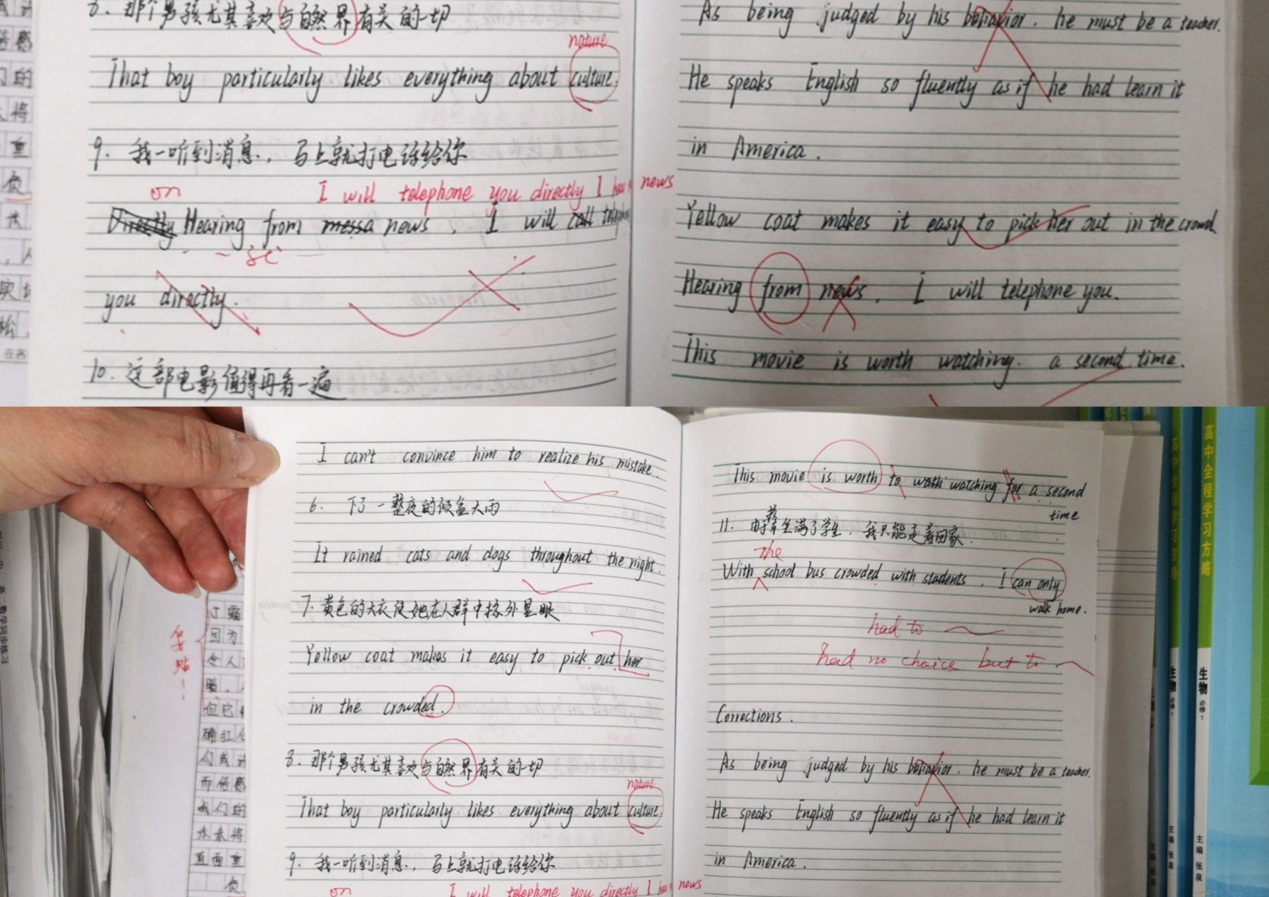 8. 那个男孩尤其喜欢与自然界有关的一切
nature
That boy particularly likes everything about culture.
9. 我一听到消息，马上就打电话给你
on I will telephone you directly I hea news
Directly Hearing from messa news, I will call telepho
you directly.
10. 这部电影值得再看一遍
As being judged by his behavior. he must be a teacher.
He speaks English so fluently as if he had learn it
in America.
Yellow coat makes it easy to pick her out in the crowd
Hearing from news. I will telephone you.
This movie is worth watching. a second time.
I can't convince him to realize his mistake.
6. 下了一整夜的倾盆大雨
It rained cats and dogs throughout the night.
7. 黄色的大衣使她在人群中格外显眼
Yellow coat makes it easy to pick out her
in the crowded.
8. 那个男孩尤其喜欢与自然界有关的一切
nature
That boy particularly likes everything about culture.
9. 我一听到消息，马上就打电话给你
on I will telephone you directly I hea news
This movie is worth to wath watching for a second
time
11. 由于校车坐满了学生，我只能走着回家.
the
With school bus crowded with students. I can only
walk home.
had to
had no choice but to
Corrections.
As being judged by his behavior. he must be a teacher.
He speaks English so fluently as if he had learn it
in America.
高中全程学习方略
生物 必修1
主编 张泉